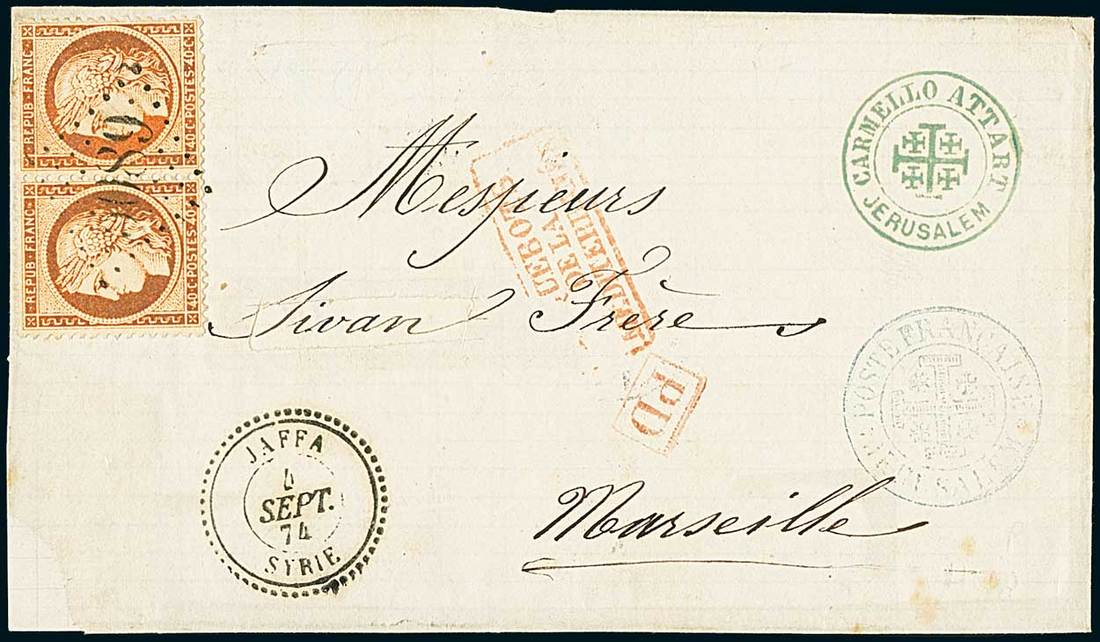 REPUB·FRANC·
40·C·POSTES·40·C·
5089
REPUB·FRANC·
40·C·POSTES·40·C·
CARMELLO ATTART
JERUSALEM
Messieurs
DE LA
Sivan Frère
PD
POSTE FRANÇAISE
JERUSALEM
JAFFA
4
SEPT.
74
SYRIE
Marseille